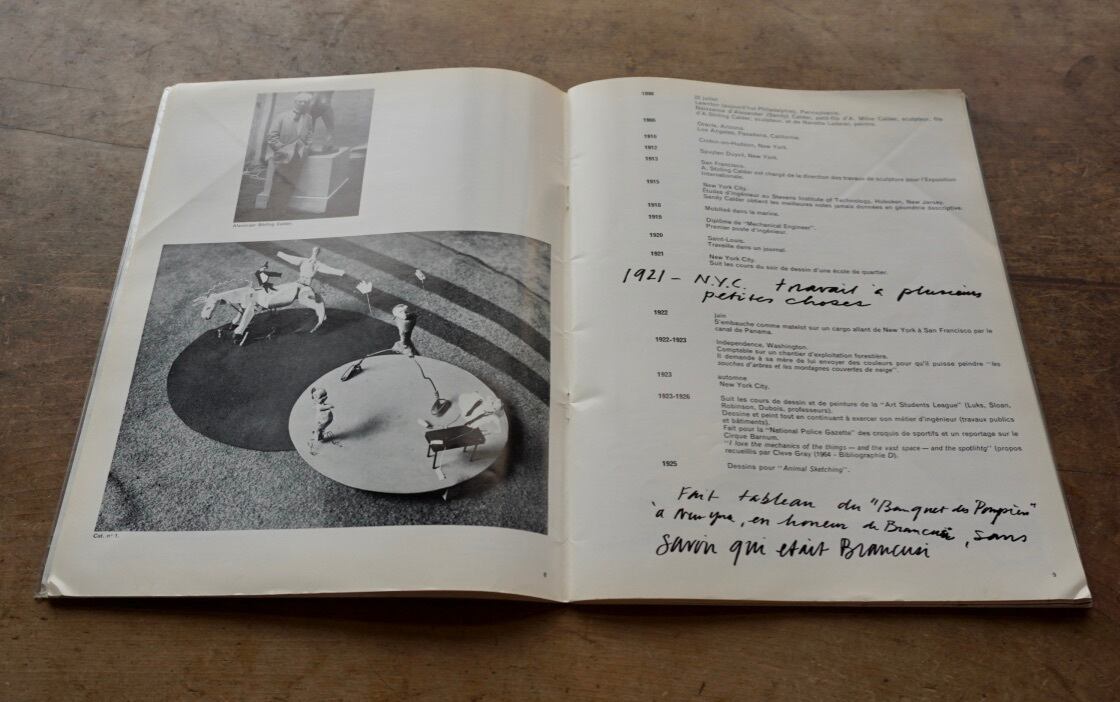 Alexander Stirling Calder.
Cat. n° 1.
8
1898
22 juillet
Lawnton (aujourd'hui Philadelphie), Pennsylvanie.
Naissance d'Alexander (Sandy) Calder, petit-fils d'A. Milne Calder, sculpteur, fils
d'A. Stirling Calder, sculpteur, et de Nanette Lederer, peintre.
1906
Oracle, Arizona.
Los Angeles, Pasadena, Californie.
1910
Croton-on-Hudson, New York.
1912
Spuyten Duyvil, New York.
1913
San Francisco.
A. Stirling Calder est chargé de la direction des travaux de sculpture pour l'Exposition
Internationale.
1915
New York City.
Études d'ingénieur au Stevens Institute of Technology, Hoboken, New Jersey.
Sandy Calder obtient les meilleures notes jamais données en géométrie descriptive.
1918
Mobilisé dans la marine.
1919
Diplôme de "Mechanical Engineer".
Premier poste d'ingénieur.
1920
Saint-Louis.
Travaille dans un journal.
1921
New York City.
Suit les cours du soir de dessin d'une école de quartier.
1921 - N.Y.C. travail à plusieurs
petites choses
1922
juin
S'embauche comme matelot sur un cargo allant de New York à San Francisco par le
canal de Panama.
1922-1923
Independence, Washington.
Comptable sur un chantier d'exploitation forestière.
Il demande à sa mère de lui envoyer des couleurs pour qu'il puisse peindre "les
souches d'arbres et les montagnes couvertes de neige".
1923
automne
New York City.
1923-1926
Suit les cours de dessin et de peinture de la "Art Students League" (Luks, Sloan,
Robinson, Dubois, professeurs).
Dessine et peint tout en continuant à exercer son métier d'ingénieur (travaux publics
et bâtiments).
Fait pour la "National Police Gazette" des croquis de sportifs et un reportage sur le
Cirque Barnum.
"I love the mechanics of the things — and the vast space — and the spotlihtg" (propos
recueillis par Cleve Gray (1964 - Bibliographie D).
1925
Dessins pour "Animal Sketching".
Fait tableau du "Banquet des Pompiers"
à , en honeur de Brancusi, sans
savoir qui etait Brancusi
9